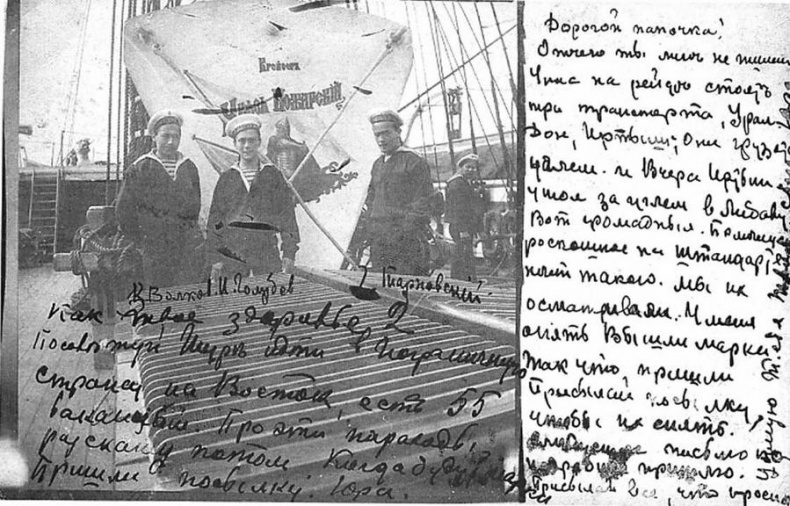 Крейсеръ
Князь Пожарскій
К Волков И. Голубев
2 Тарновскій
Как твое здоровье 2
Посоветуй Шурѣ идти в Пограничную
стражу на Восток, есть 55
вакансий. Про эти пароходы,
раскажу потом. Когда буду
Пришли посылку. Юра.
Дорогой папочка!
Отчего ты мнѣ не пишешь
У нас на рейде стоять
три транспорта, Урал
Дон, Иртыш; Они грузят
углем. и Вчера Иртыш
ушол за углем в Либаву
Вот громадныя.
роскошное на Штандар,
нѣт такого. Мы их
осматривали. У меня
опять вышли марки
так что, пришли
Присылай посылку,
чтобы их снять.
письмо
подробно пришлю.
Присылай все, что просил